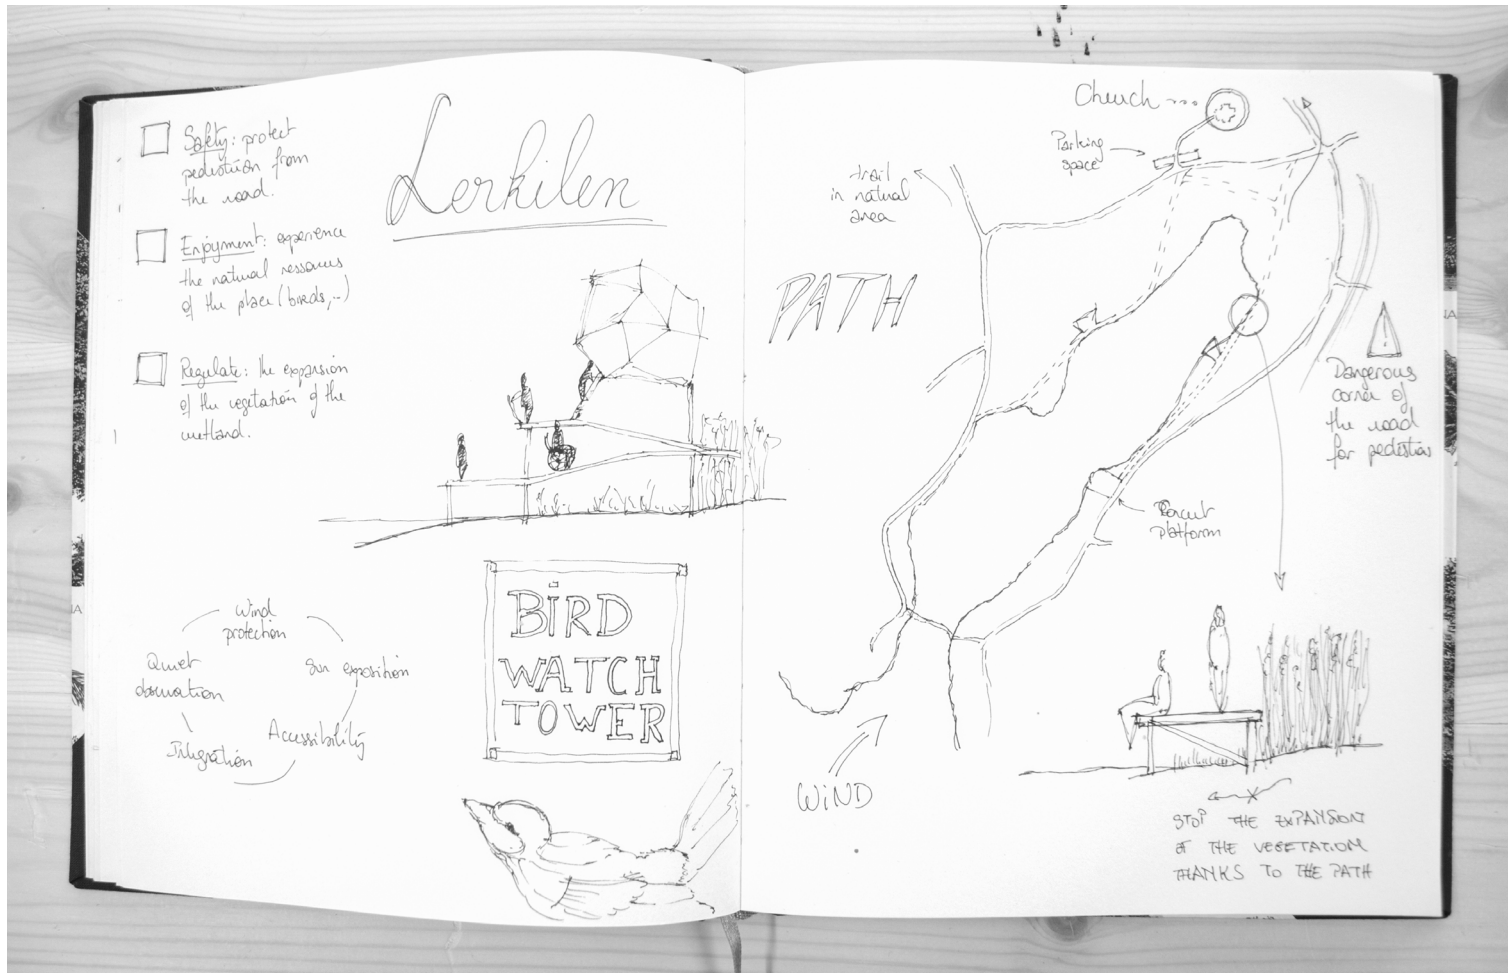 Safety: protect
pedestrian from
the road.
Enjoyment: experience
the natural ressources
of the place (birds,..)
Regulate: the expansion
of the vegetation of the
wetland.
Lerkilen
Wind
protection
Sun exposition
Accessibility
Integration
Quiet
BIRD
WATCH
TOWER
PATH
trail
in natural
area
Church
Parking
space
Dangerous
corner of
the road
for pedestrians
platform
WIND
STOP THE EXPANSION
OF THE VEGETATION
THANKS TO THE PATH